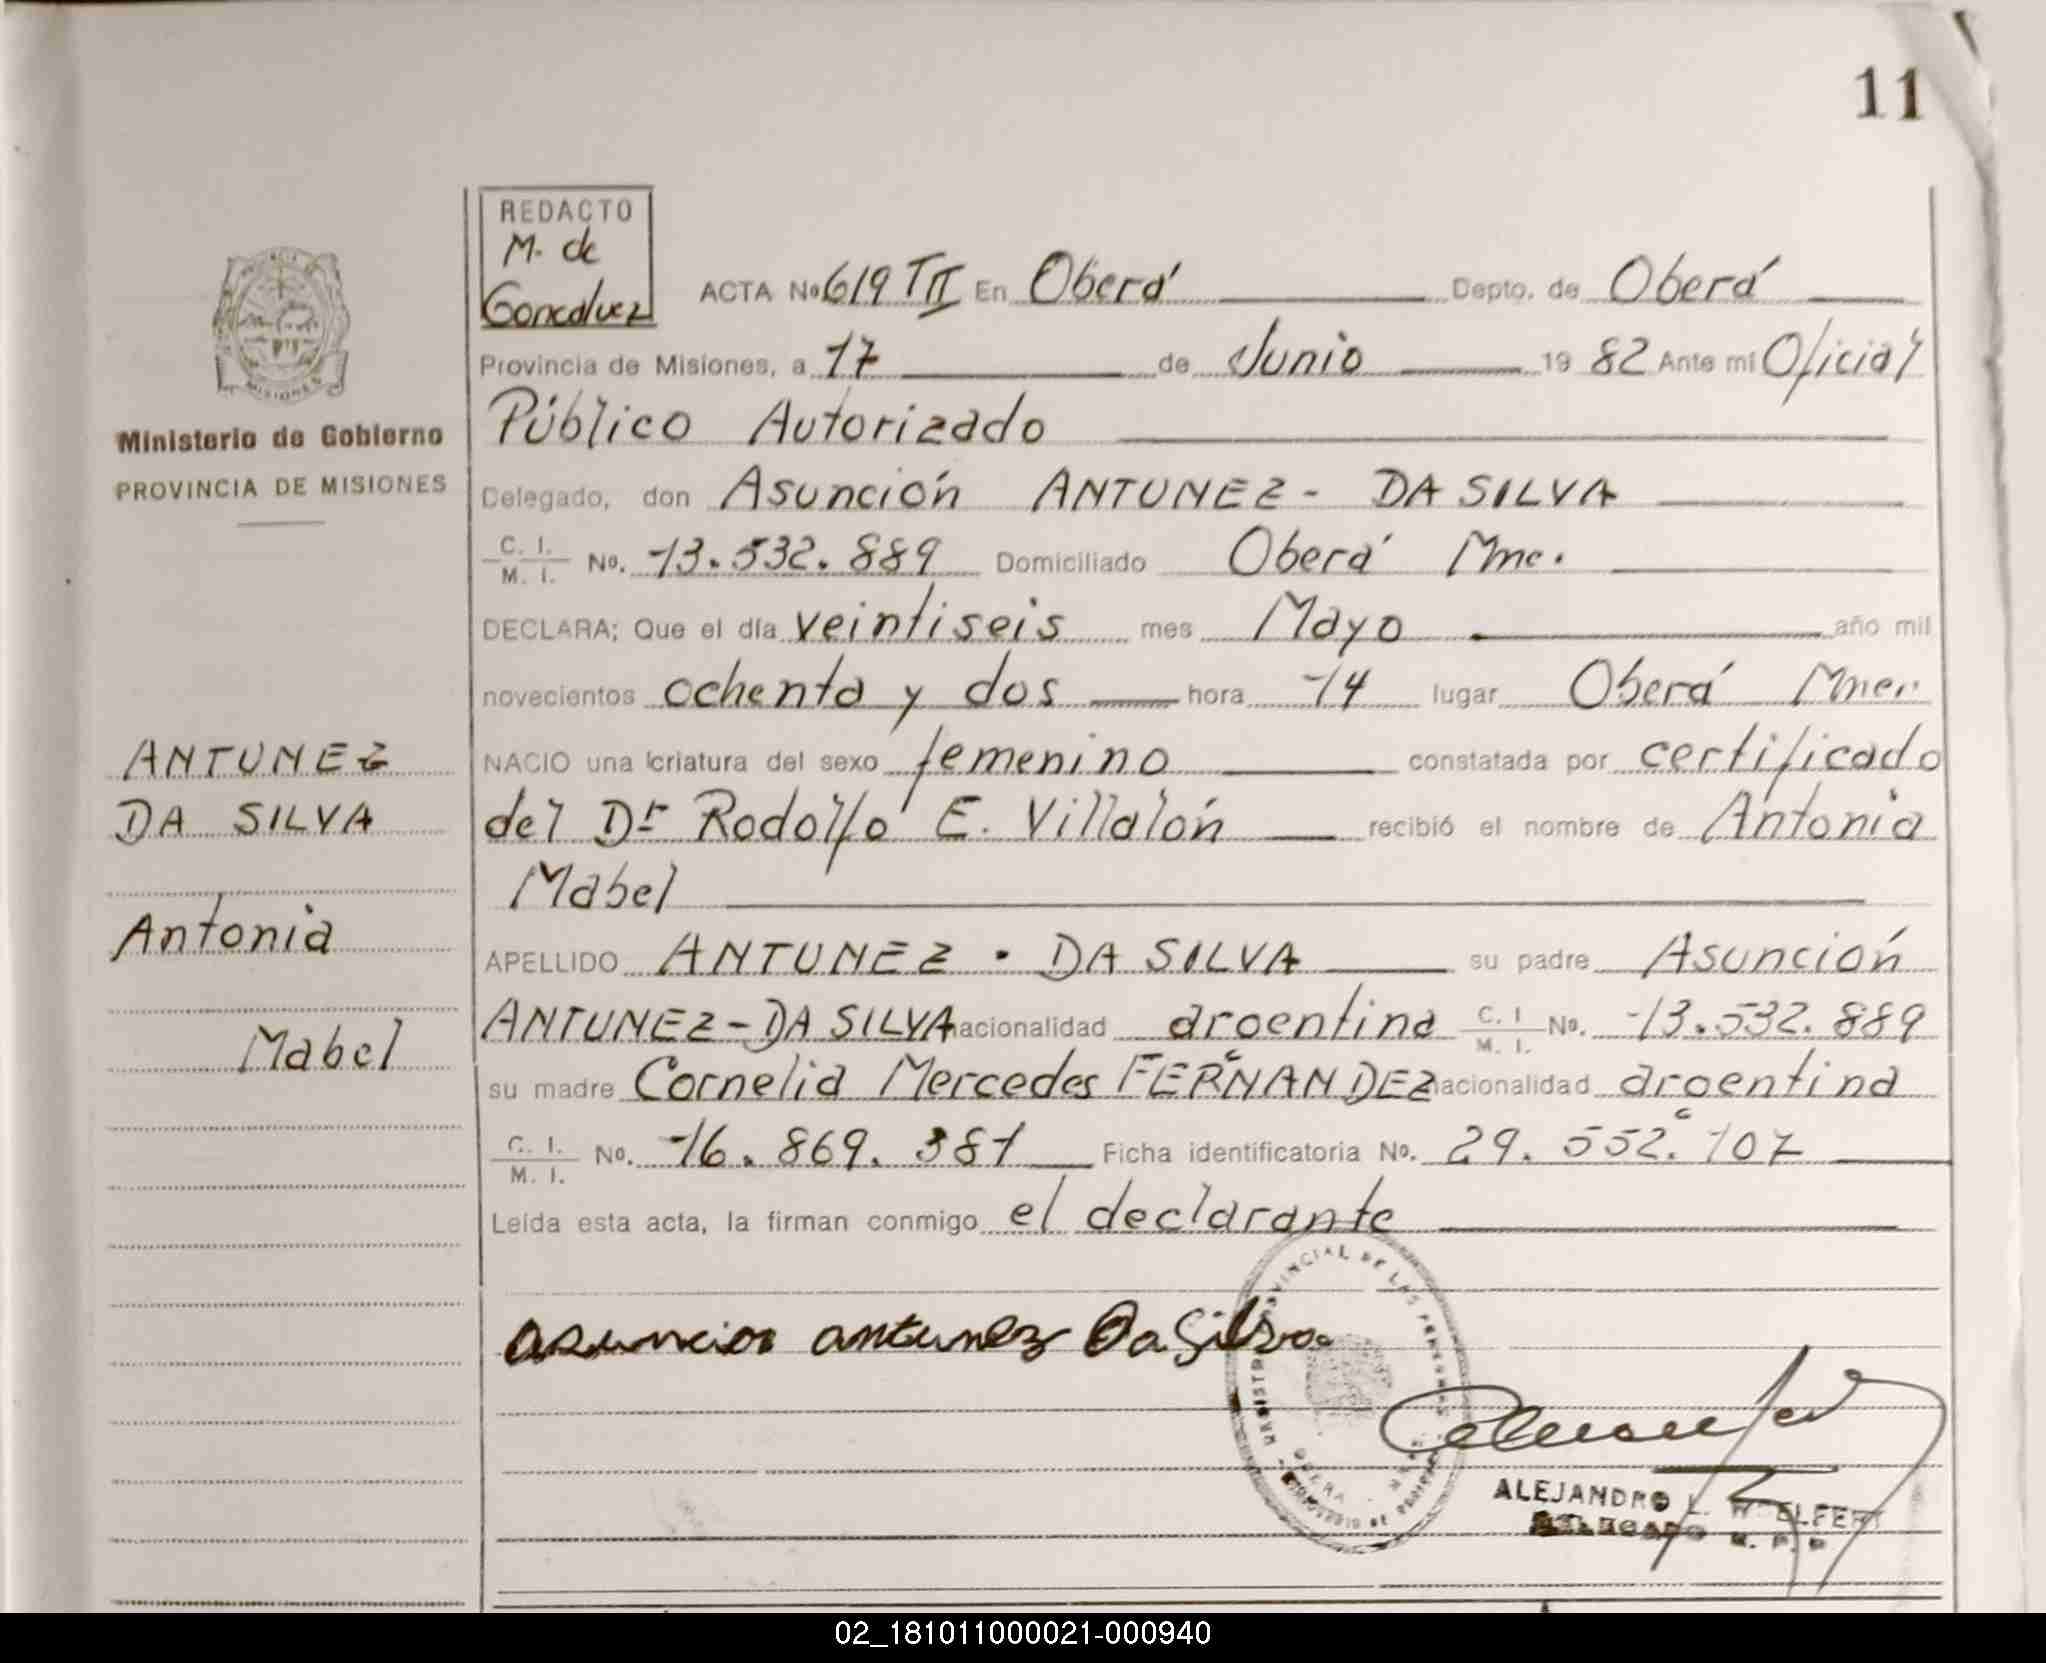 11
REDACTO
M. de
Goncalvez
ACTA No 619 TII En Oberá Depto. de Oberá
Provincia de Misiones, a 17 de Junio 19 82 Ante mi Oficial
Público Autorizado
Ministerio de Gobierno
PROVINCIA DE MISIONES
Delegado, don Asunción ANTUNEZ - DA SILVA
C. I.
M. I. No. 13.532.889 Domiciliado Oberá Mnes.
DECLARA; Que el día veintiseis mes Mayo año mil
novecientos ochenta y dos hora 14 lugar Oberá Mnes.
NACIO una criatura del sexo femenino constatada por certificado
del Dr Rodolfo E. Villalón recibió el nombre de Antonia
Mabel
APELLIDO ANTUNEZ - DA SILVA su padre Asunción
ANTUNEZ - DA SILVA nacionalidad argentina C. I
M. I. No. 13.532.889
su madre Cornelia Mercedes FERNANDEZ nacionalidad argentina
C. I.
M. I. No. 16.869.381 Ficha identificatoria No. 29.552.107
Leída esta acta, la firman conmigo el declarante
ANTUNEZ
DA SILVA
Antonia
Mabel
MISIONES
asuncion antunez Da Silva
ALEJANDRO L. WOELFERT
DELEGADO R. P. P
02_181011000021-000940